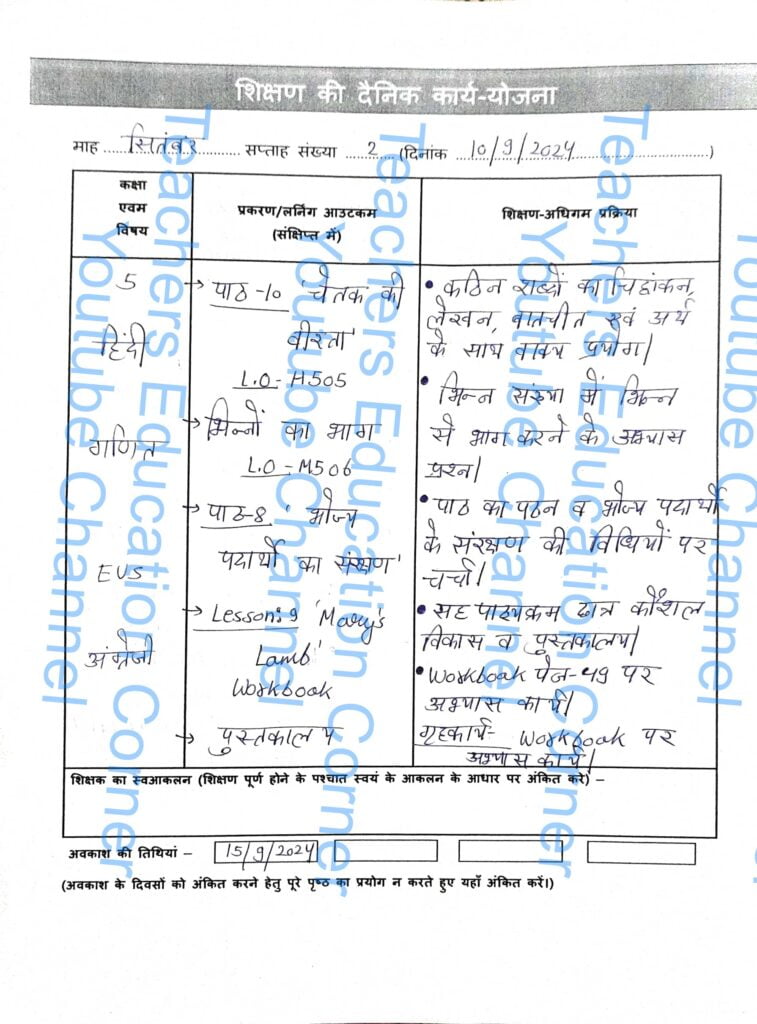 शिक्षण की दैनिक कार्य-योजना
माह सितंबर सप्ताह संख्या 2 (दिनांक 10/9/2024)
कक्षा
एवम
विषय
प्रकरण/लर्निंग आउटकम
(संक्षिप्त में)
शिक्षण-अधिगम प्रक्रिया
5
हिंदी
गणित
EVS
अंग्रेजी
→ पाठ-10 'चेतक की
वीरता'
L.O-H505
→ भिन्नों का भाग
L.O-M506
→ पाठ-8 'भोज्य
पदार्थों का संरक्षण'
→ Lesson:9 'Mary's
Lamb'
Workbook
→ पुस्तकालय
• कठिन शब्दों का चिन्हांकन,
लेखन, बातचीत एवं अर्थ
के साथ वाक्य प्रयोग।
• भिन्न संख्या में भिन्न
से भाग करने के अभ्यास
प्रश्न।
• पाठ का पठन व भोज्य पदार्थों
के संरक्षण की विधियों पर
चर्चा।
• सह पाठ्यक्रम छात्र कौशल
विकास व पुस्तकालय।
• Workbook पेज-49 पर
अभ्यास कार्य।
गृहकार्य- Workbook पर
अभ्यास कार्य।
शिक्षक का स्वआकलन (शिक्षण पूर्ण होने के पश्चात स्वयं के आकलन के आधार पर अंकित करे) –
अवकाश की तिथियां – 15/9/2024
(अवकाश के दिवसों को अंकित करने हेतु पूरे पृष्ठ का प्रयोग न करते हुए यहाँ अंकित करें।)
Teachers Education Corner
Youtube Channel
Teachers Education Corner
Youtube Channel
Teachers Education Corner
Youtube Channel
Youtube Channel